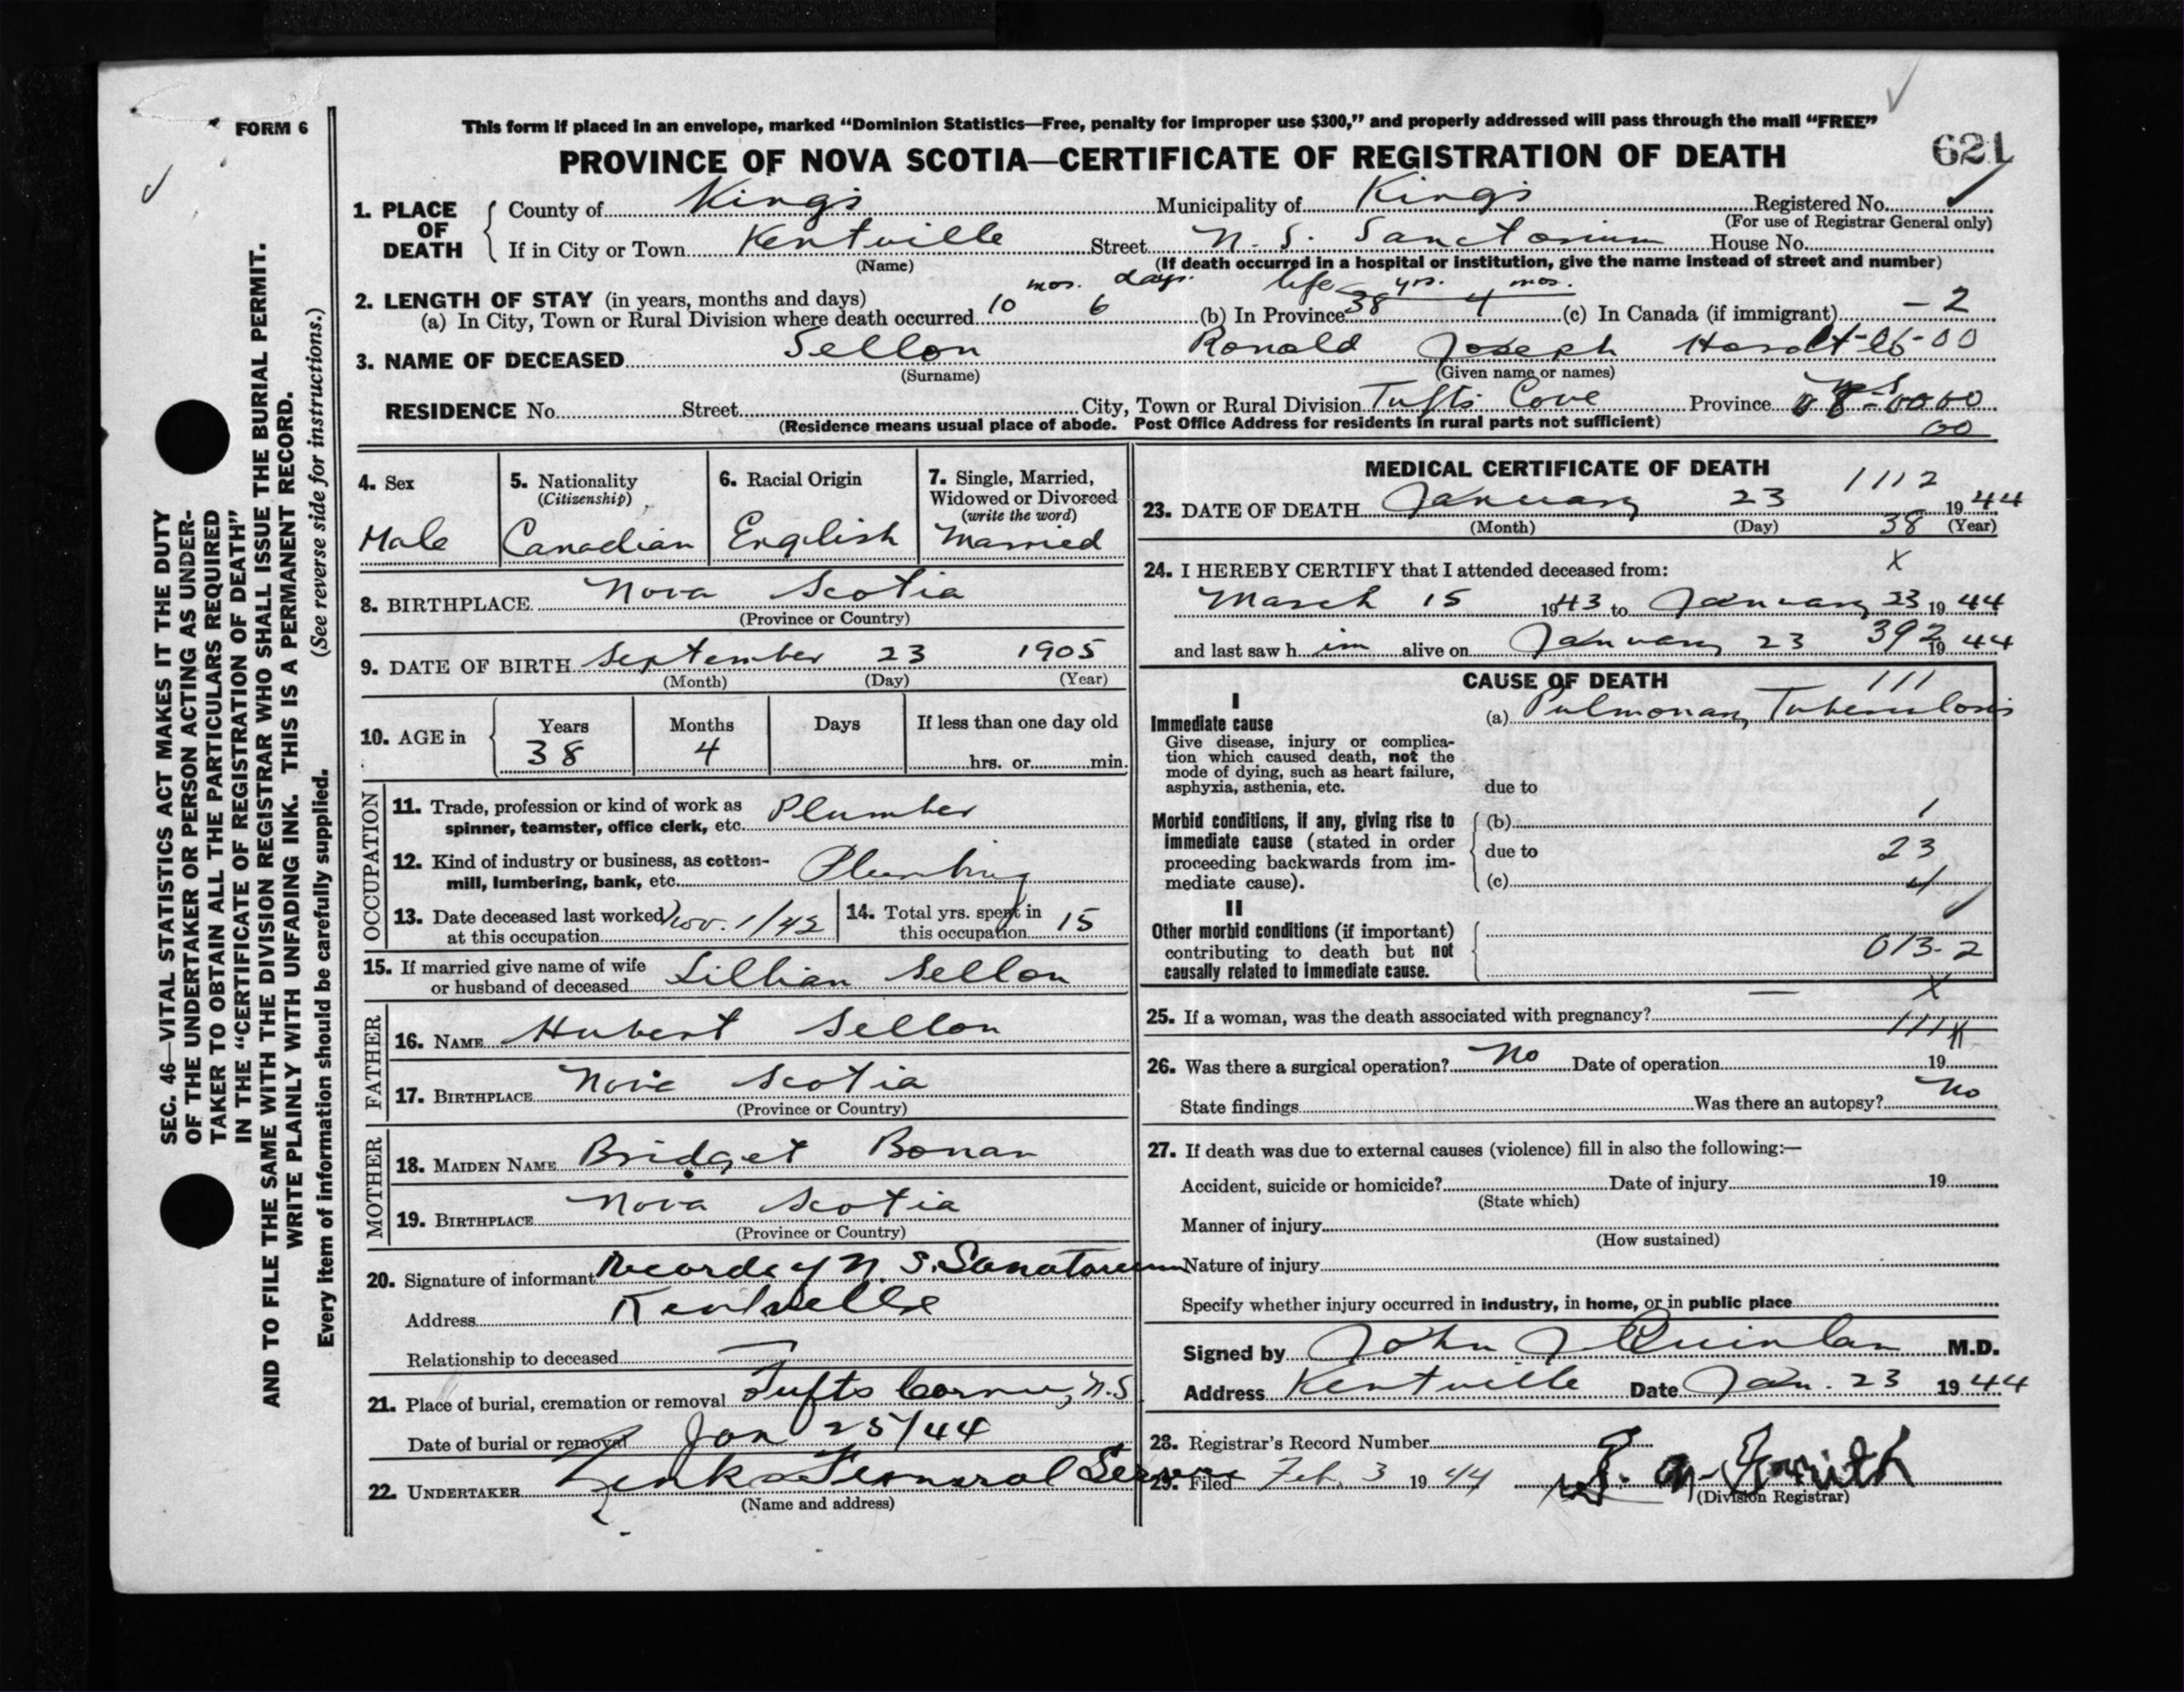 FORM 6
This form if placed in an envelope, marked “Dominion Statistics—Free, penalty for improper use $300,” and properly addressed will pass through the mail “FREE”
PROVINCE OF NOVA SCOTIA—CERTIFICATE OF REGISTRATION OF DEATH
621
1. PLACE OF DEATH
County of Kings Municipality of Kings Registered No.
(For use of Registrar General only)
If in City or Town Kentville Street N. S. Sanctorium House No.
(Name) (If death occurred in a hospital or institution, give the name instead of street and number)
2. LENGTH OF STAY (in years, months and days)
(a) In City, Town or Rural Division where death occurred 10 mos. 6 days. (b) In Province life 38 yrs. 4 mos. (c) In Canada (if immigrant) -2
3. NAME OF DECEASED Sellon Ronald Joseph
(Surname) (Given name or names)
RESIDENCE No. Street City, Town or Rural Division Tufts Cove Province
(Residence means usual place of abode. Post Office Address for residents in rural parts not sufficient)
00
4. Sex
Male
5. Nationality
(Citizenship)
Canadian
6. Racial Origin
English
7. Single, Married,
Widowed or Divorced
(write the word)
Married
8. BIRTHPLACE Nova Scotia
(Province or Country)
9. DATE OF BIRTH September 23 1905
(Month) (Day) (Year)
10. AGE in
Years Months Days If less than one day old
38 4 hrs. or min.
OCCUPATION
11. Trade, profession or kind of work as
spinner, teamster, office clerk, etc. Plumber
12. Kind of industry or business, as cotton-
mill, lumbering, bank, etc. Plumbing
13. Date deceased last worked
at this occupation Nov. 1/42
14. Total yrs. spent in
this occupation 15
15. If married give name of wife
or husband of deceased Lillian Sellon
FATHER
16. NAME Hubert Sellon
17. BIRTHPLACE Nova Scotia
(Province or Country)
MOTHER
18. MAIDEN NAME Bridget Bonan
19. BIRTHPLACE Nova Scotia
(Province or Country)
20. Signature of informant Records of N. S. Sanatorium
Address Kentville
Relationship to deceased
21. Place of burial, cremation or removal Tufts Corner, N.S.
Date of burial or removal Jan 25/44
22. UNDERTAKER Zink Funeral Service
(Name and address)
MEDICAL CERTIFICATE OF DEATH
1112
23. DATE OF DEATH January 23 1944
(Month) (Day) (Year)
38
X
24. I HEREBY CERTIFY that I attended deceased from:
March 15 1943 to January 23 1944
and last saw him alive on January 23 1944
392
CAUSE OF DEATH
111
I
Immediate cause
Give disease, injury or complica-
tion which caused death, not the
mode of dying, such as heart failure,
asphyxia, asthenia, etc.
(a) Pulmonary Tuberculosis
due to
Morbid conditions, if any, giving rise to
immediate cause (stated in order
proceeding backwards from im-
mediate cause).
(b) 1
due to 23
(c) 4
II
Other morbid conditions (if important)
contributing to death but not
causally related to immediate cause.
013-2
X
25. If a woman, was the death associated with pregnancy? —
26. Was there a surgical operation? No Date of operation 19
State findings Was there an autopsy? No
27. If death was due to external causes (violence) fill in also the following:—
Accident, suicide or homicide? Date of injury 19
(State which)
Manner of injury
(How sustained)
Nature of injury
Specify whether injury occurred in industry, in home, or in public place
Signed by John J Quinlan M.D.
Address Kentville Date Jan. 23 1944
28. Registrar's Record Number
29. Filed Feb. 3 1944
(Division Registrar)
SEC. 46—VITAL STATISTICS ACT MAKES IT THE DUTY
OF THE UNDERTAKER OR PERSON ACTING AS UNDER-
TAKER TO OBTAIN ALL THE PARTICULARS REQUIRED
IN THE “CERTIFICATE OF REGISTRATION OF DEATH”
AND TO FILE THE SAME WITH THE DIVISION REGISTRAR WHO SHALL ISSUE THE BURIAL PERMIT.
WRITE PLAINLY WITH UNFADING INK. THIS IS A PERMANENT RECORD.
Every item of information should be carefully supplied. (See reverse side for instructions.)